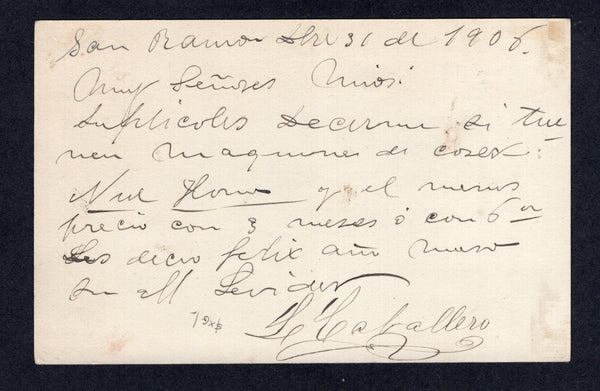 San Ramon Dbre 31 de 1906.
Muy Señores Mios:
Suplicoles Decirme si tie-
nen maquines de coser
Nue Home y el menos
precio con 3 meses ó con 6 or
Les deceo felix año nuevo
Su att Servidor
L Caballero